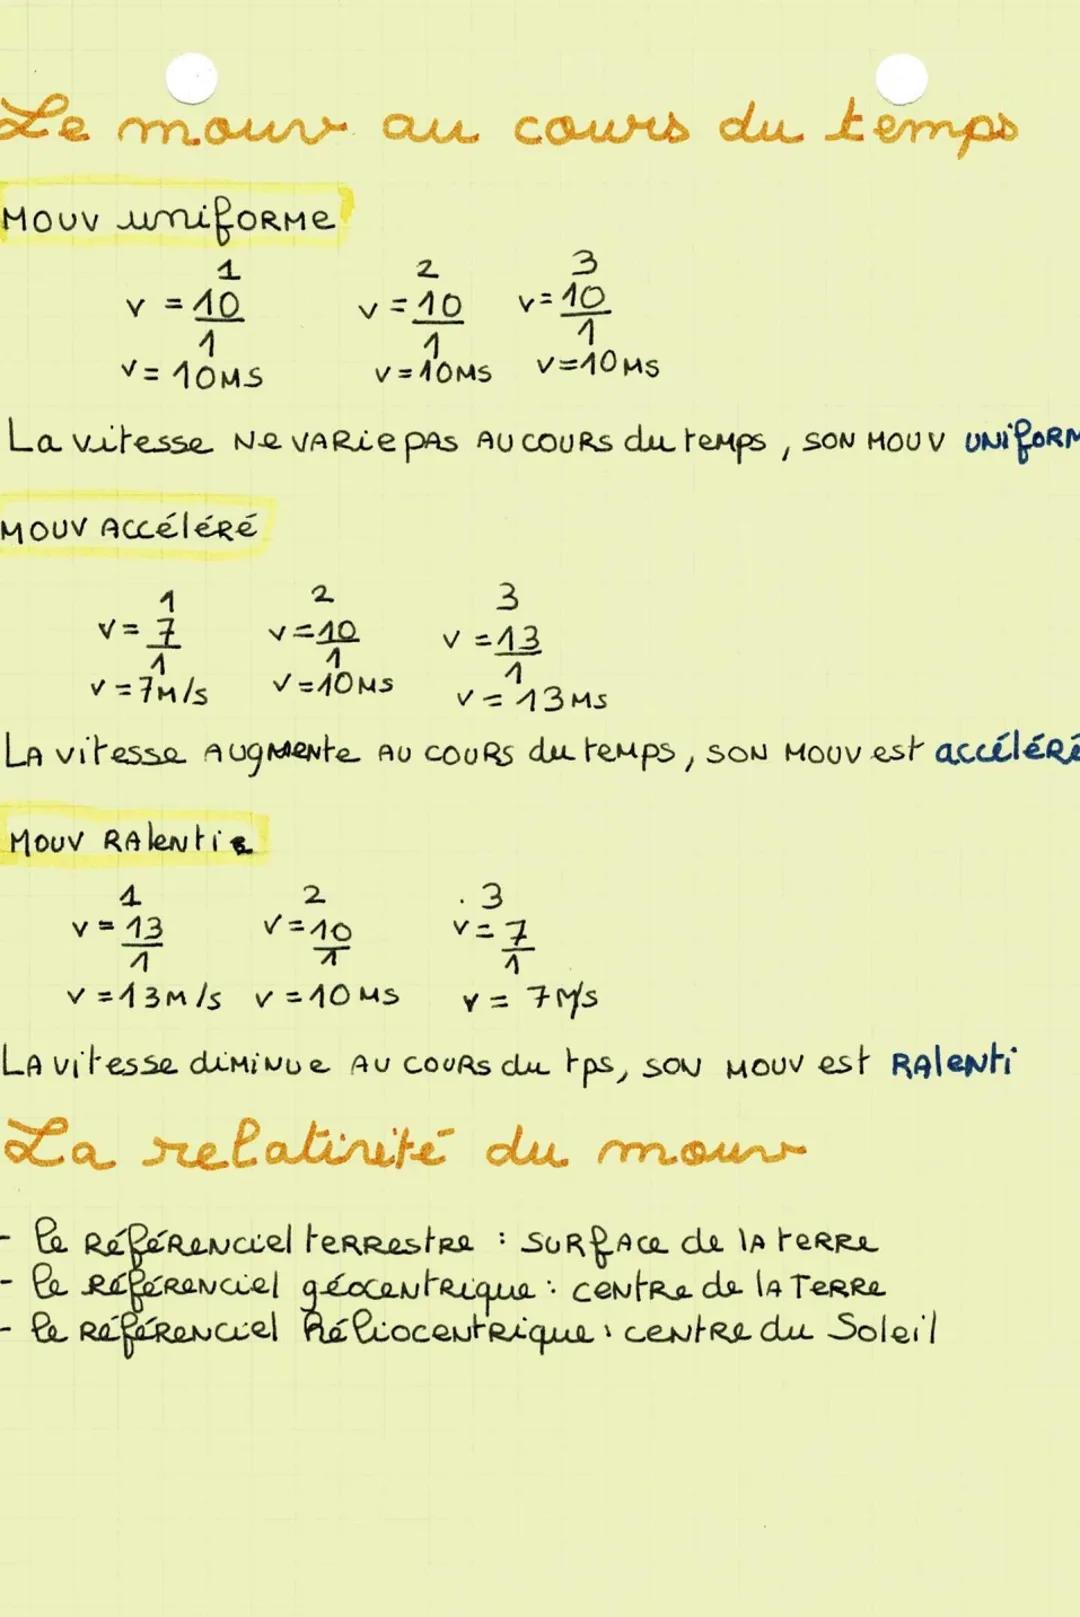 Le mouv au cours du temps
MOUV UNIFORME
1 2 3
v = 10 v = 10 v = 10
1 1 1
v = 10MS v = 10MS v = 10MS
La vitesse Ne VARie PAS AU COURS du temps, SON MOUV UNIFORM
MOUV ACCéléRé
1 2 3
v = 7 v = 10 v = 13
1 1 1
v = 7M/s v = 10MS v = 13MS
LA vitesse AUGMente AU COURS du temps, SON MOUV est accéléré
MOUV RAlenti
1 2 3
v = 13 v = 10 v = 7
1 1 1
v = 13M/s v = 10MS v = 7M/s
LA vitesse diMiNue AU COURS du tps, SON MOUV est RAlenti
La relativité du mouv
- le RéféRENciel teRRestRe : SURfAce de lA teRRe
- le RéféRENciel géocentRique : ceNtRe de lA TeRRe
- le RéféRENciel héliocentRique : ceNtRe du Soleil